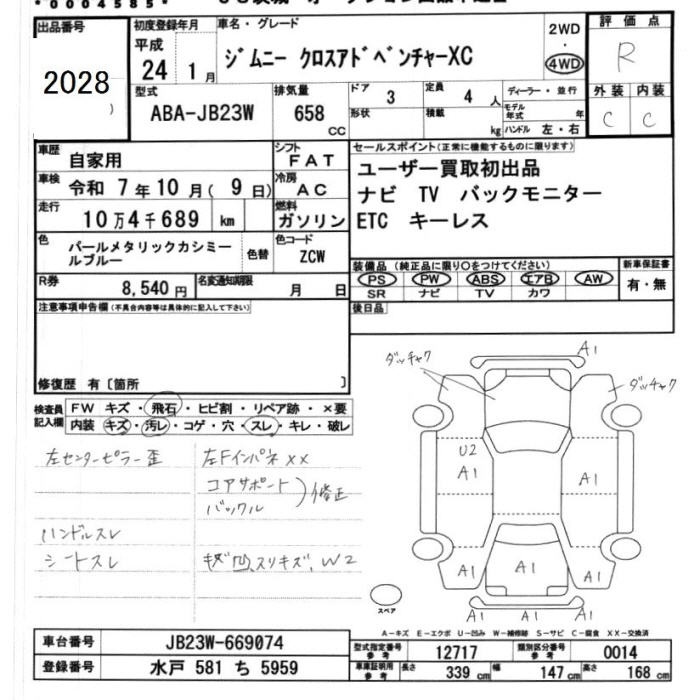 *0004585*
出品番号
2028
初度登録年月
平成
24 1月
車名・グレード
ジムニー クロスアドベンチャーXC
2WD
・
4WD
評価点
R
外装 内装
C C
型式
ABA-JB23W
排気量
658
CC
ドア
3
形状
定員
4 人
積載
kg
ディーラー・並行
モデル年式 年
ハンドル 左・右
車歴
自家用
シフト
FAT
車検
令和 7年10月(9日)
冷房
AC
走行
10万4千689 km
燃料
ガソリン
色
パールメタリックカシミールブルー
色替
色コード
ZCW
R券
8,540円
名変通知期限
月 日
セールスポイント(正常に機能するものに限ります)
ユーザー買取初出品
ナビ TV バックモニター
ETC キーレス
装備品(純正品に限り○をつけてください)
PS PW ABS エアB AW
SR ナビ TV カワ
新車保証書
有・無
後日品
注意事項申告欄(不具合内容等は具体的に記入して下さい)
修復歴 有〔箇所 〕
検査員記入欄
FW キズ・飛石・ヒビ割・リペア跡・×要
内装 キズ・汚レ・コゲ・穴・スレ・キレ・破レ
左センターピラー歪
左Fインパネ××
コアサポート
バックル
)修正
ハンドルスレ
シートスレ
キズ凹、スリキズ、W2
A1
ダッチャク
ダッチャク
U2
A1
A1
A1
A1
A1
A1
スペア
A-キズ E-エクボ U-凹み W-補修跡 S-サビ C-腐食 XX-交換済
車台番号
JB23W-669074
登録番号
水戸 581 ち 5959
型式指定番号
参考
12717
類別区分番号
参考
0014
車庫証明用
参考
長さ
339 cm
幅
147 cm
高さ
168 cm